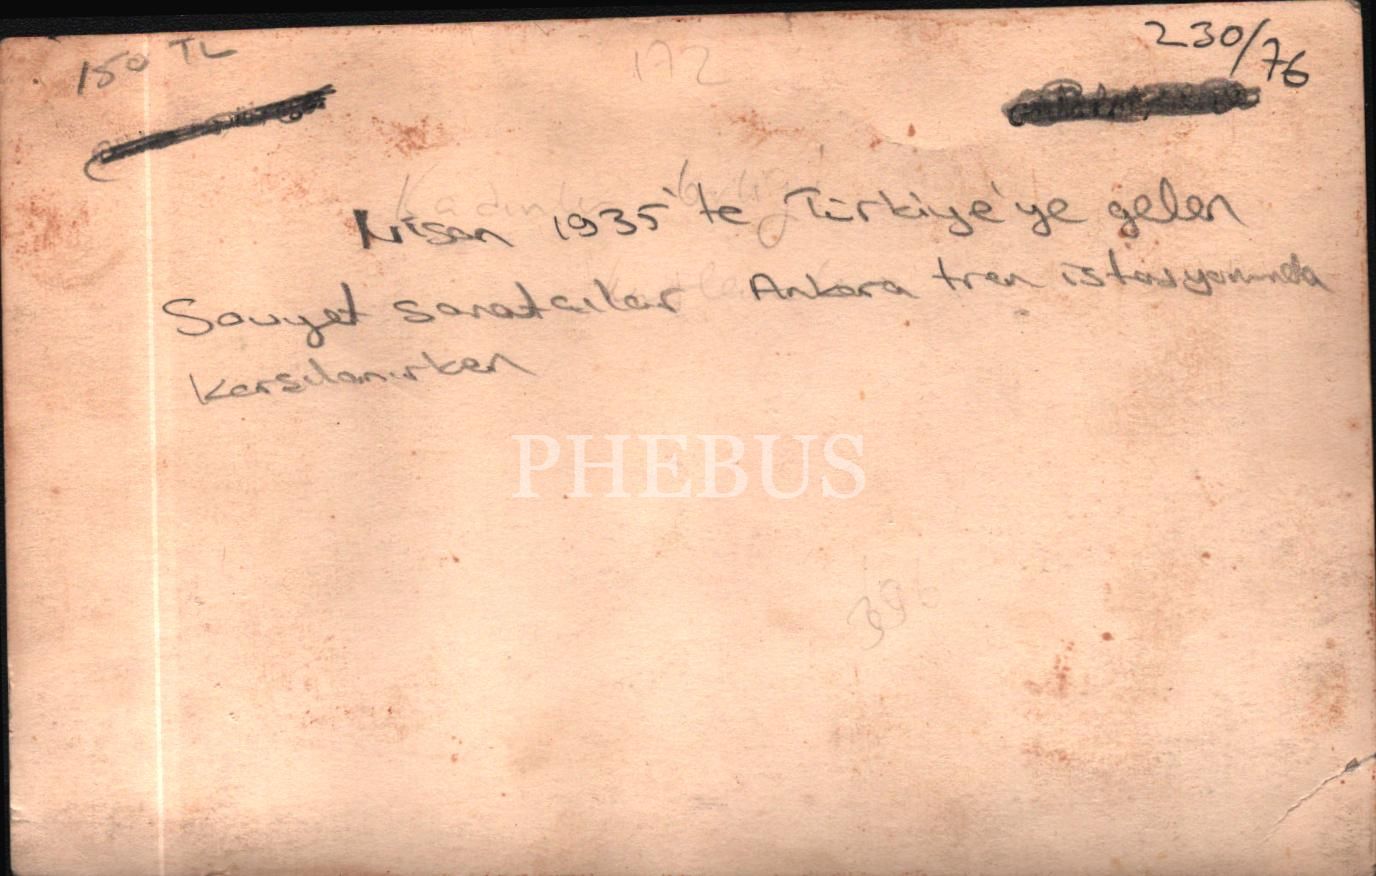 150 TL
172
230/76
Nisan 1935'te Türkiye'ye gelen
Sovyet sanatçılar Ankara tren istasyonunda
karşılanırken
PHEBUS
396